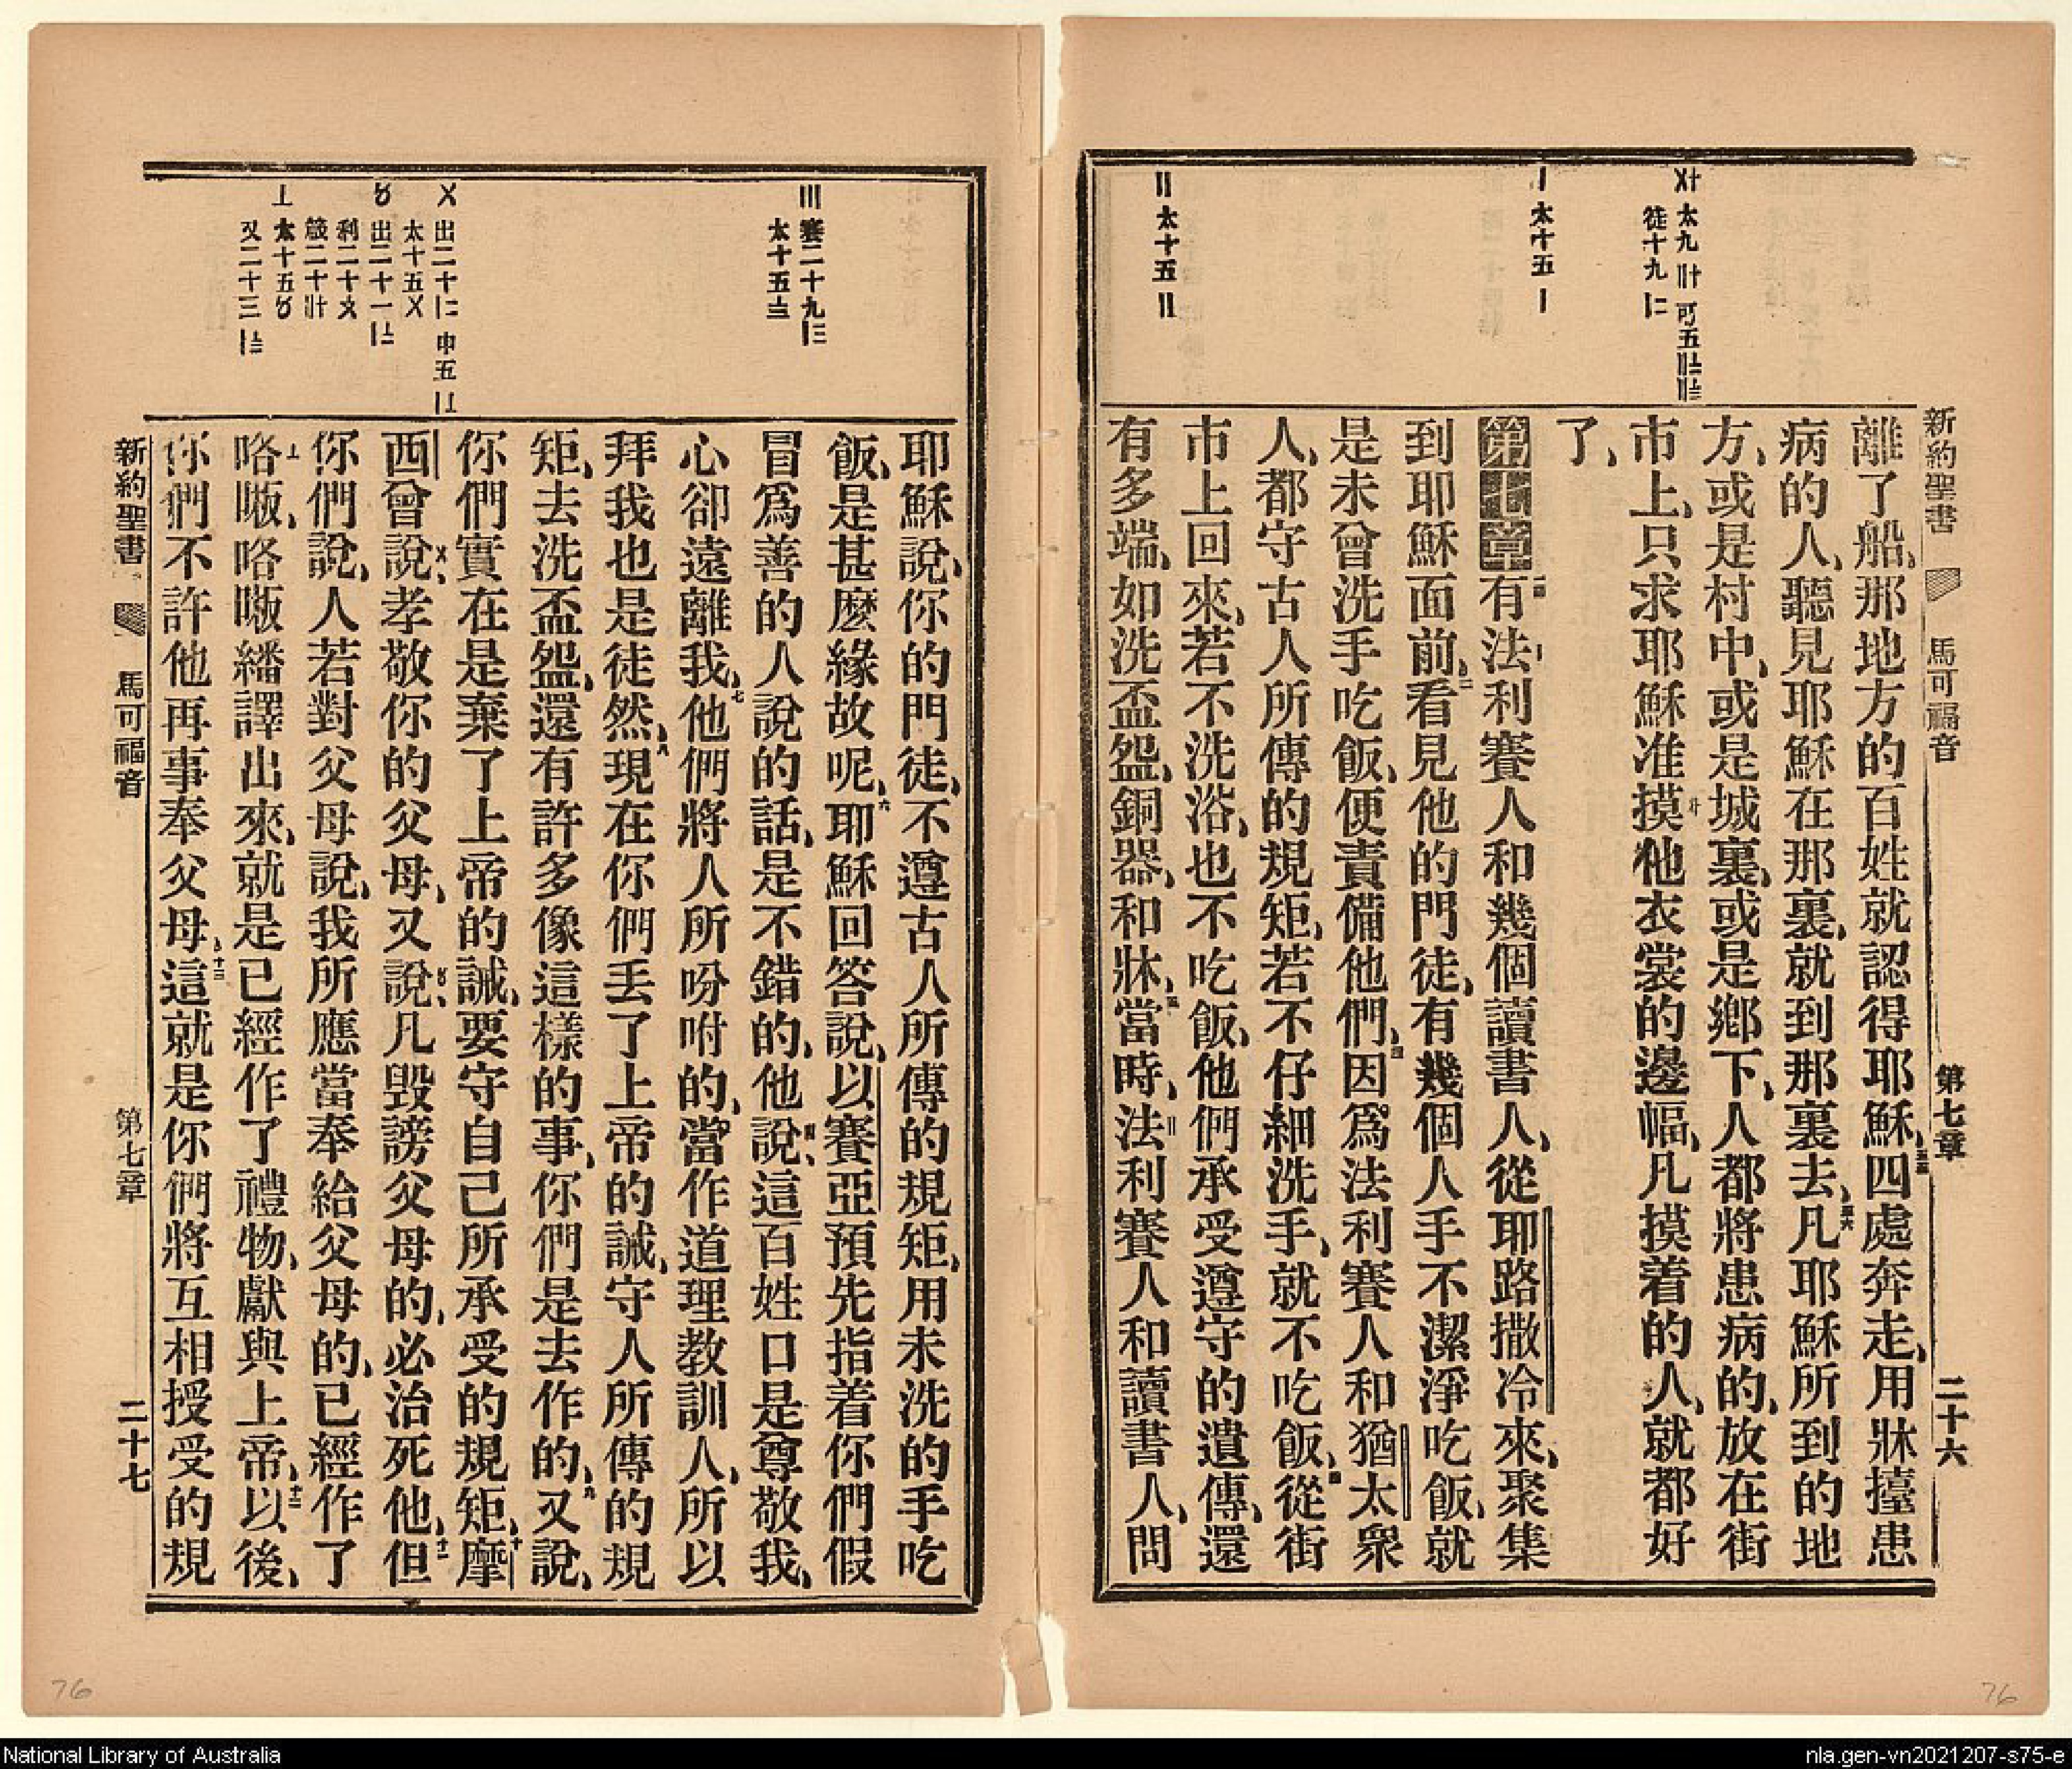 新約聖書 馬可福音 第七章 二十六
太九〢〸 可五
徒十九〡二
〡 太十五〡
〢 太十五〢
離了船、那地方的百姓就認得耶穌、四處奔走、用牀擡患
病的人、聽見耶穌在那裏、就到那裏去、凡耶穌所到的地
方、或是村中、或是城裏、或是鄉下、人都將患病的、放在街
市上、只求耶穌准摸他衣裳的邊幅、凡摸着的人、就都好
了、
第七章有法利賽人和幾個讀書人、從耶路撒冷來、聚集
到耶穌面前、看見他的門徒、有幾個人手不潔淨吃飯、就
是未曾洗手吃飯、便責備他們、因爲法利賽人和猶太衆
人、都守古人所傳的規矩、若不仔細洗手、就不吃飯、從街
市上回來、若不洗浴、也不吃飯、他們承受遵守的遺傳、還
有多端、如洗盃盌、銅器、和牀、當時、法利賽人和讀書人、問
〣 賽二十九〡三
太十五
〤 出二十〡二 申五
太十五〤
〥 出二十一
利二十
箴二十
〦 太十五〥
又二十三
耶穌說、你的門徒、不遵古人所傳的規矩、用未洗的手吃
飯、是甚麼緣故呢、六耶穌回答說、以賽亞預先指着你們假
冒爲善的人說的話、是不錯的、他說、這百姓口是尊敬我、
心卻遠離我、七他們將人所吩咐的、當作道理教訓人、所以
拜我也是徒然、八現在你們丟了上帝的誡、守人所傳的規
矩、去洗盃盌、還有許多像這樣的事、你們是去作的、九又說、
你們實在是棄了上帝的誡、要守自己所承受的規矩、十摩
西曾說、孝敬你的父母、又說、凡毁謗父母的、必治死他、十一但
你們說、人若對父母說、我所應當奉給父母的、已經作了
咯㗑、咯㗑繙譯出來、就是已經作了禮物、獻與上帝、十二以後、
你們不許他再事奉父母、十三這就是你們將互相授受的規
新約聖書 馬可福音 第七章 二十七
76
76
National Library of Australia
nla.gen-vn2021207-s75-e